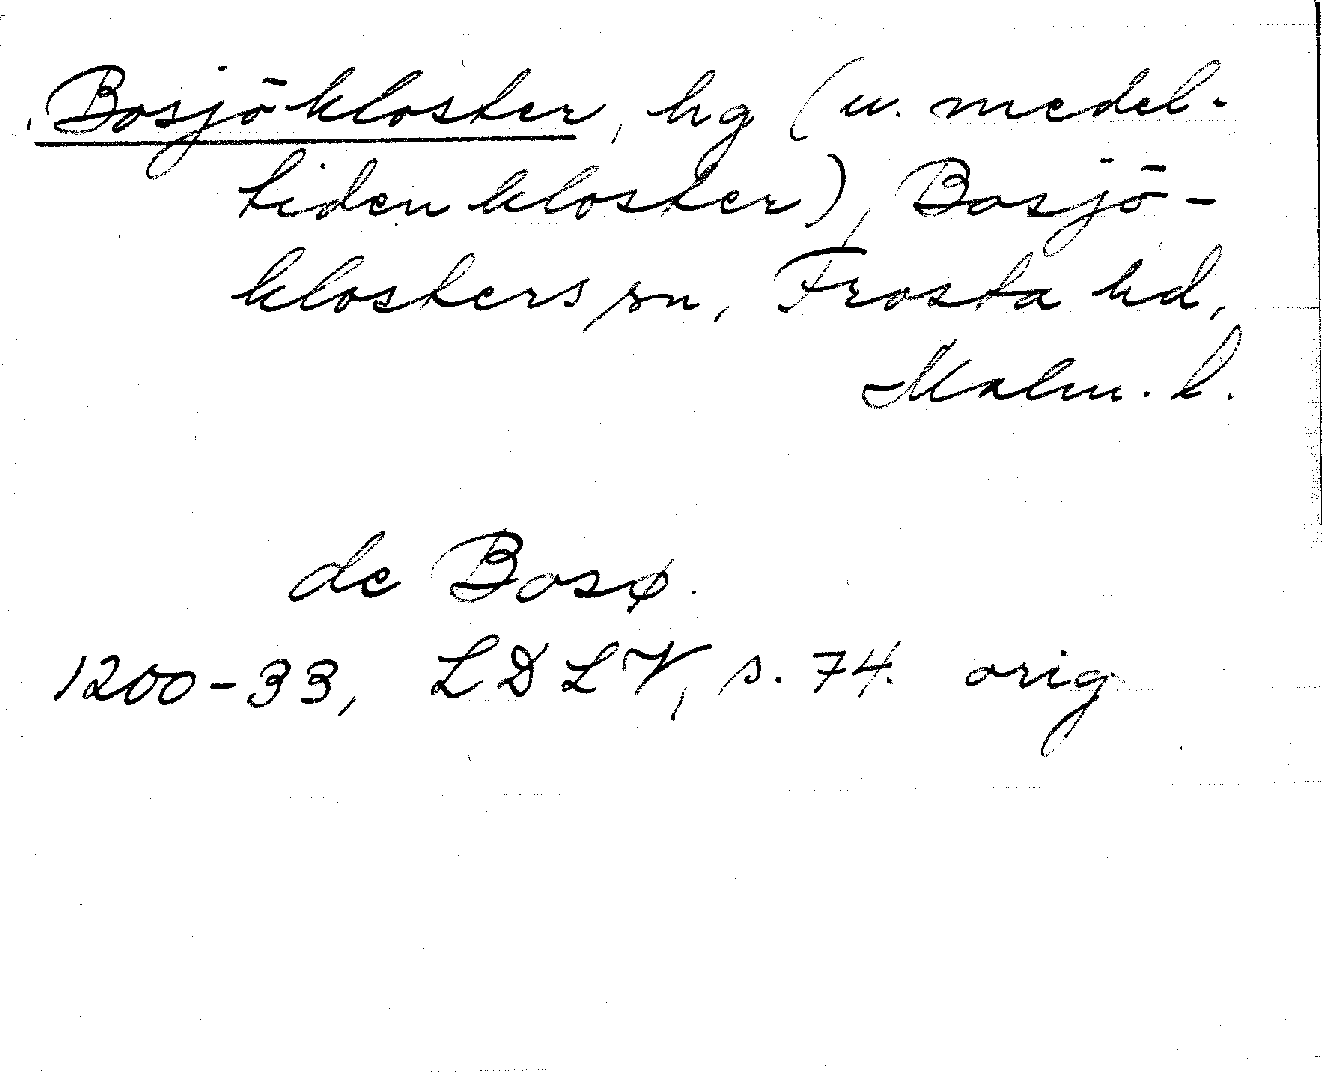 Bosjökloster, hg (u. medel-
tiden kloster), Bosjö-
klosters sn, Frosta hd,
Malm. l.
de Bosø.
1200-33, LDLV, s. 74. orig